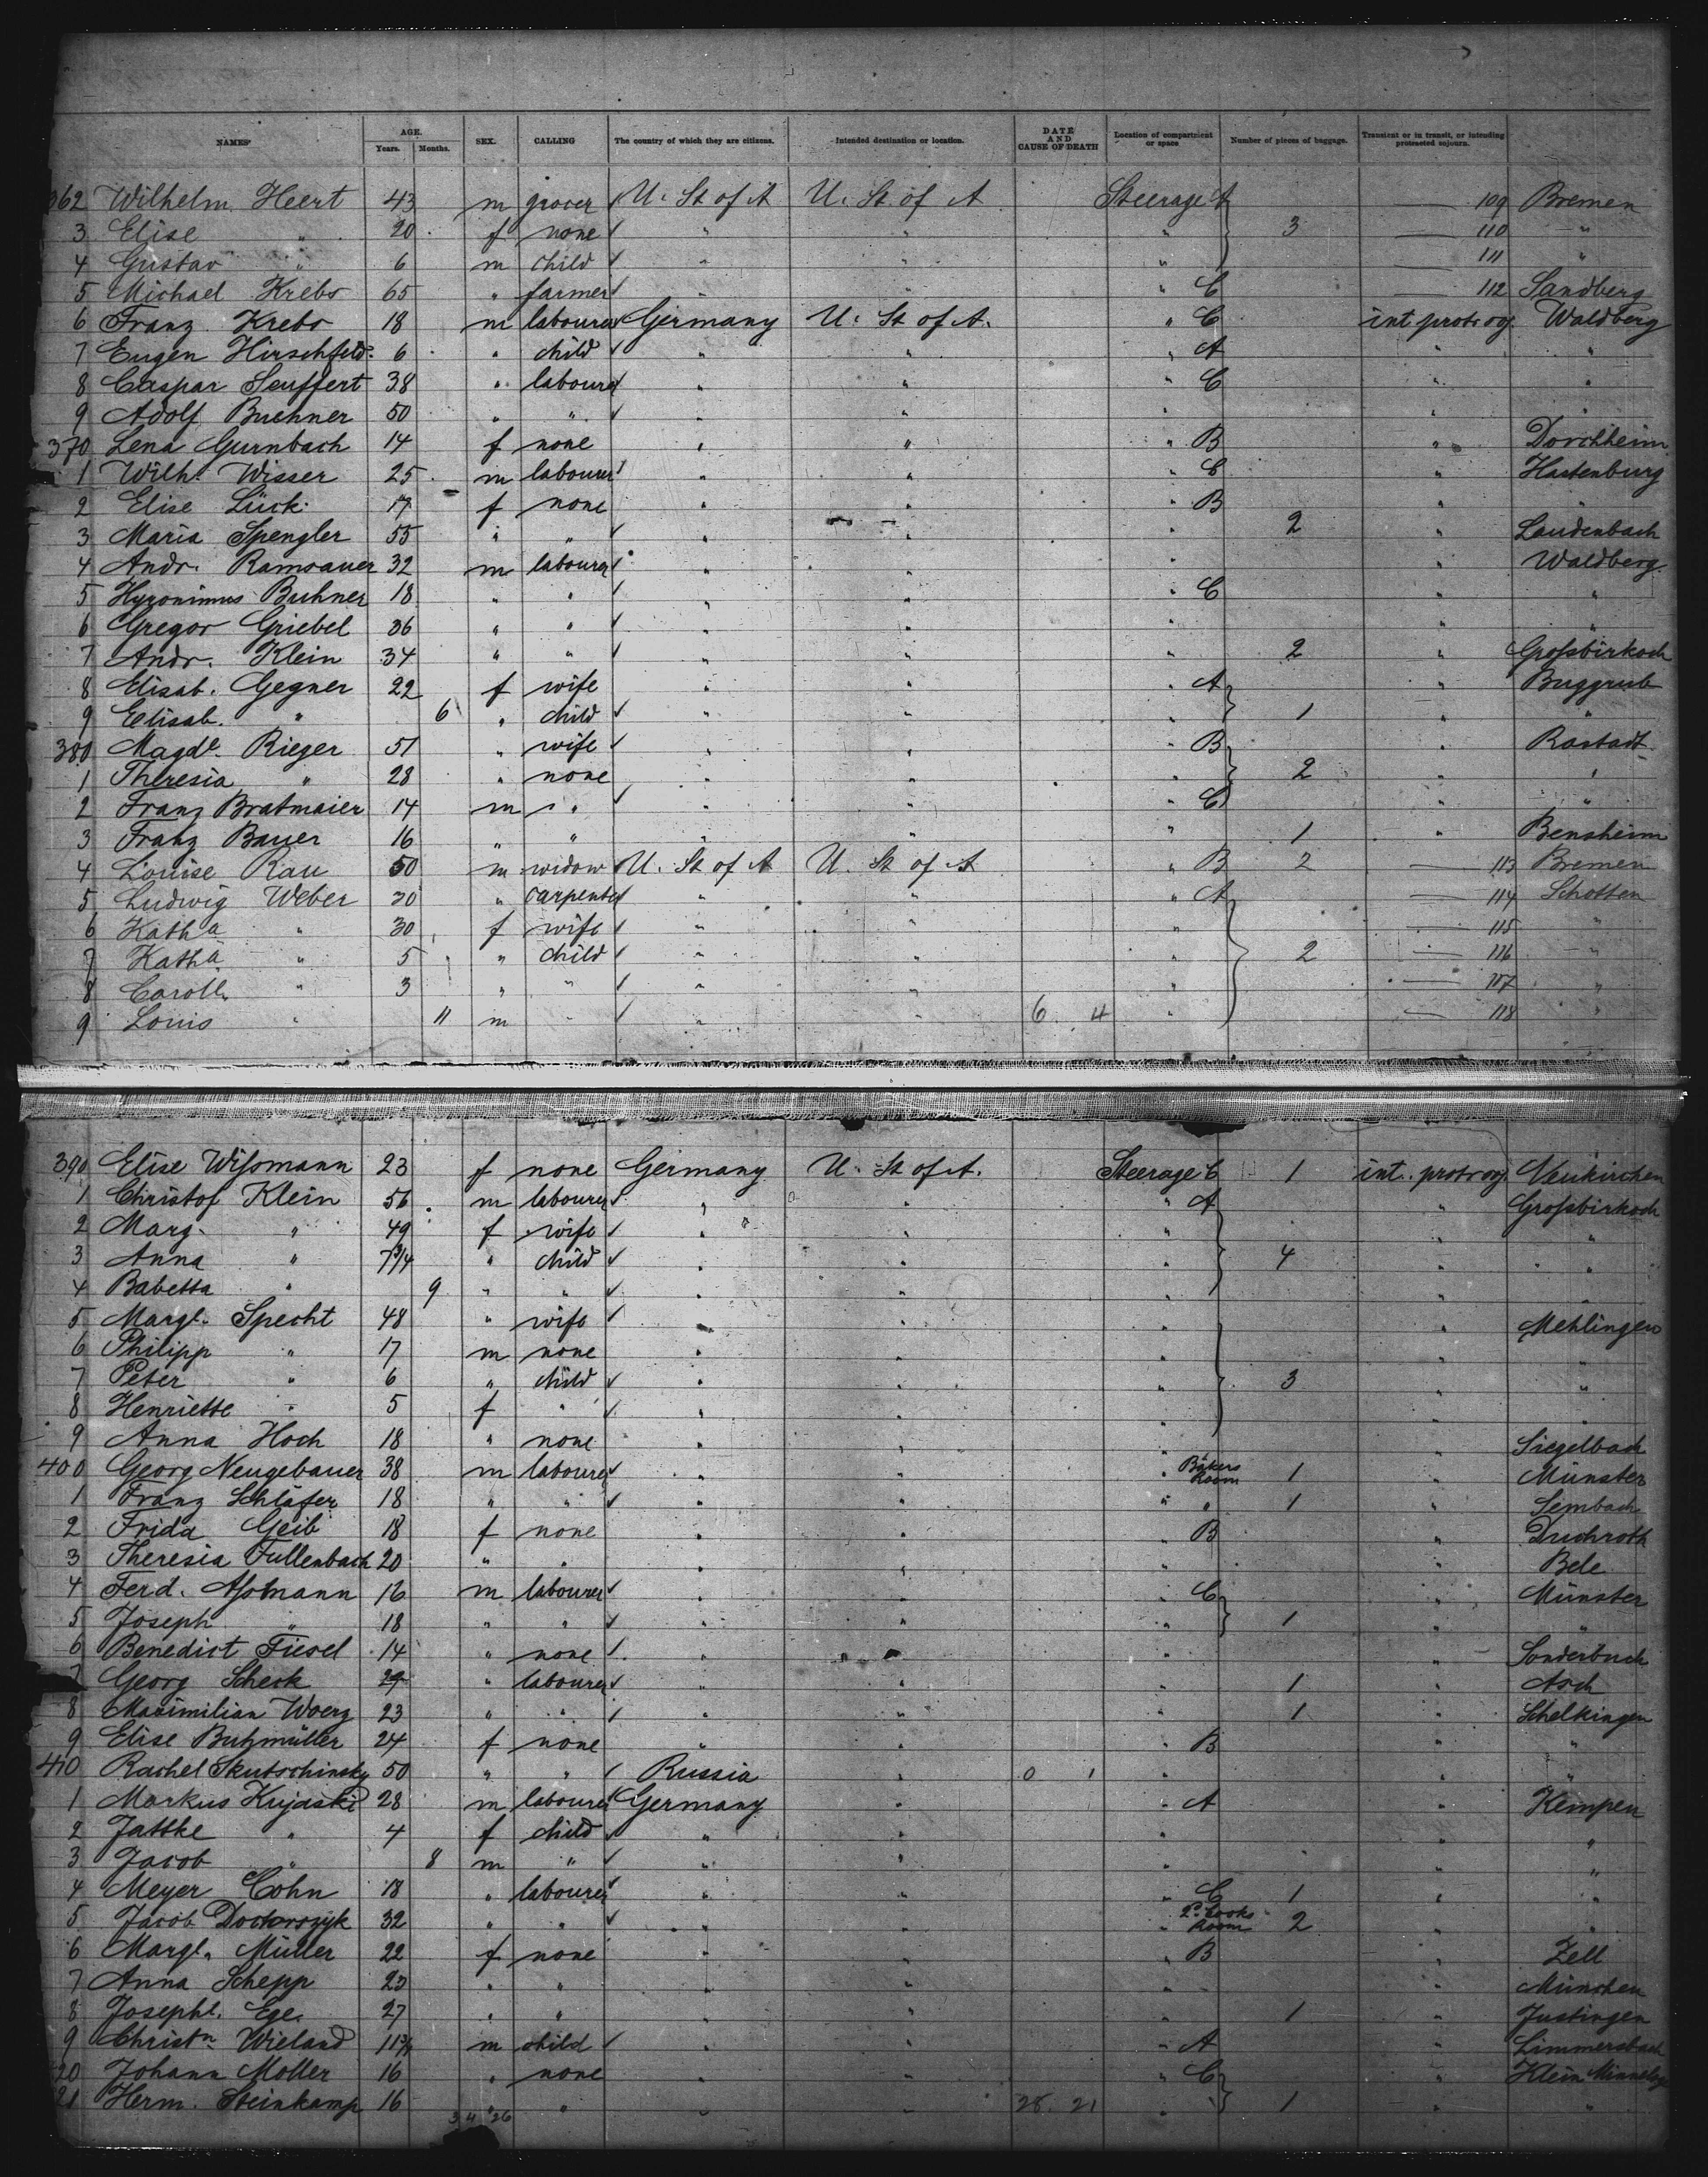 NAMES AGE. Years. Months. SEX. CALLING The country of which they are citizens. Intended destination or location. DATE AND CAUSE OF DEATH Location of compartment or space Number of pieces of baggage. Transient or in transit, or intending protracted sojourn.
362 Wilhelm Heert 43 m grocer U. St of A U. St. of A Steerage A — 109 Bremen
3 Elise " 20 f none " " " 3 — 110 "
4 Gustav " 6 m child " " " — 111 "
5 Michael Krebs 65 " farmer " " " C — 112 Sandberg
6 Franz Krebs 18 m labourer Germany U. St of A. " C int. protr. og. Waldberg
7 Eugen Hirschfeld 6 " child " " " A " "
8 Caspar Seuffert 38 " labourer " " " C " "
9 Adolf Buehner 50 " " " " " " "
370 Lena Gurnbach 14 f none " " " B " Dorchheim
1 Wilh. Wisser 25 m labourer " " " C " Hastenburg
2 Elise Lück 17 f none " " " B " "
3 Maria Spengler 55 " " " " " 2 " Laudenbach
4 Andr. Ramsauer 32 m labourer " " " " Waldberg
5 Hyronimus Buhner 18 " " " " " C " "
6 Gregor Griebel 36 " " " " " " "
7 Andr. Klein 34 " " " " " 2 " Großbirkach
8 Elisab. Gegner 22 f wife " " " A " Buggrub
9 Elisab. " 6 " child " " " 1 " "
380 Magde. Rieger 51 " wife " " " B " Rastadt
1 Theresia " 28 " none " " " 2 " "
2 Franz Bratmaier 14 m " " " " C " "
3 Franz Bauer 16 " " " " " 1 " Bensheim
4 Louise Rau 50 m widow U. St of A U. St of A " B 2 — 113 Bremen
5 Ludwig Weber 30 " carpenter " " " A — 114 Schotten
6 Katha " 30 f wife " " " — 115 "
7 Katha " 5 " child " " " 2 — 116 "
8 Caroll. " 3 " " " " " — 117 "
9 Louis " 11 m " " " 6 4 " — 118 "
390 Elise Wißmann 23 f none Germany U. St of A. Steerage C 1 int. protr. og. Neukirchen
1 Christof Klein 56 m labourer " " " A " Großbirkach
2 Marg. " 49 f wife " " " " "
3 Anna " 7 3/4 " child " " " 4 " "
4 Babetta " 9 " " " " " " "
5 Margt. Specht 48 " wife " " " " Mehlingen
6 Philipp " 17 m none " " " " "
7 Peter " 6 " child " " " 3 " "
8 Henriette " 5 f " " " " " "
9 Anna Hoch 18 " none " " " " Siegelbach
400 Georg Neugebauer 38 m labourer " " " Bakers Room 1 " Münster
1 Franz Schläfer 18 " " " " " " 1 " Sembach
2 Frida Geib 18 f none " " " B "
3 Theresia Fullenbach 20 " " " " " " Bele
4 Ferd. Aßmann 16 m labourer " " " C " Münster
5 Joseph " 18 " " " " " 1 " "
6 Benedict Fiesel 14 " none " " " " Sonderbuch
7 Georg Scheck 29 " labourer " " " 1 " Asch
8 Maximilian Woerz 23 " " " " " 1 " Schelkingen
9 Elise Buhmüller 24 f none " " " B " "
410 Rachel Skutschinsky 50 " " Russia " 0 1 " " "
1 Markus Kujaski 28 m labourer Germany " " A " Kempen
2 Jattke " 4 f child " " " " "
3 Jacob " 8 m " " " " " "
4 Meyer Cohn 18 " labourer " " " C 1 " "
5 Jacob Doctorszyk 32 " " " " " 2. Cooks Room 2 " "
6 Margt. Müller 22 f none " " " B " Zell
7 Anna Schepp 23 " " " " " " München
8 Josephe. Ege 27 " " " " " 1 " Justingen
9 Christn. Wieland 11 3/4 m child " " " A " Limmersbach
20 Johann Moller 16 " none " " " C " Klein
21 Herm. Steinkamp 16 " " " " 28. 21 " 1 " "
3 4 26